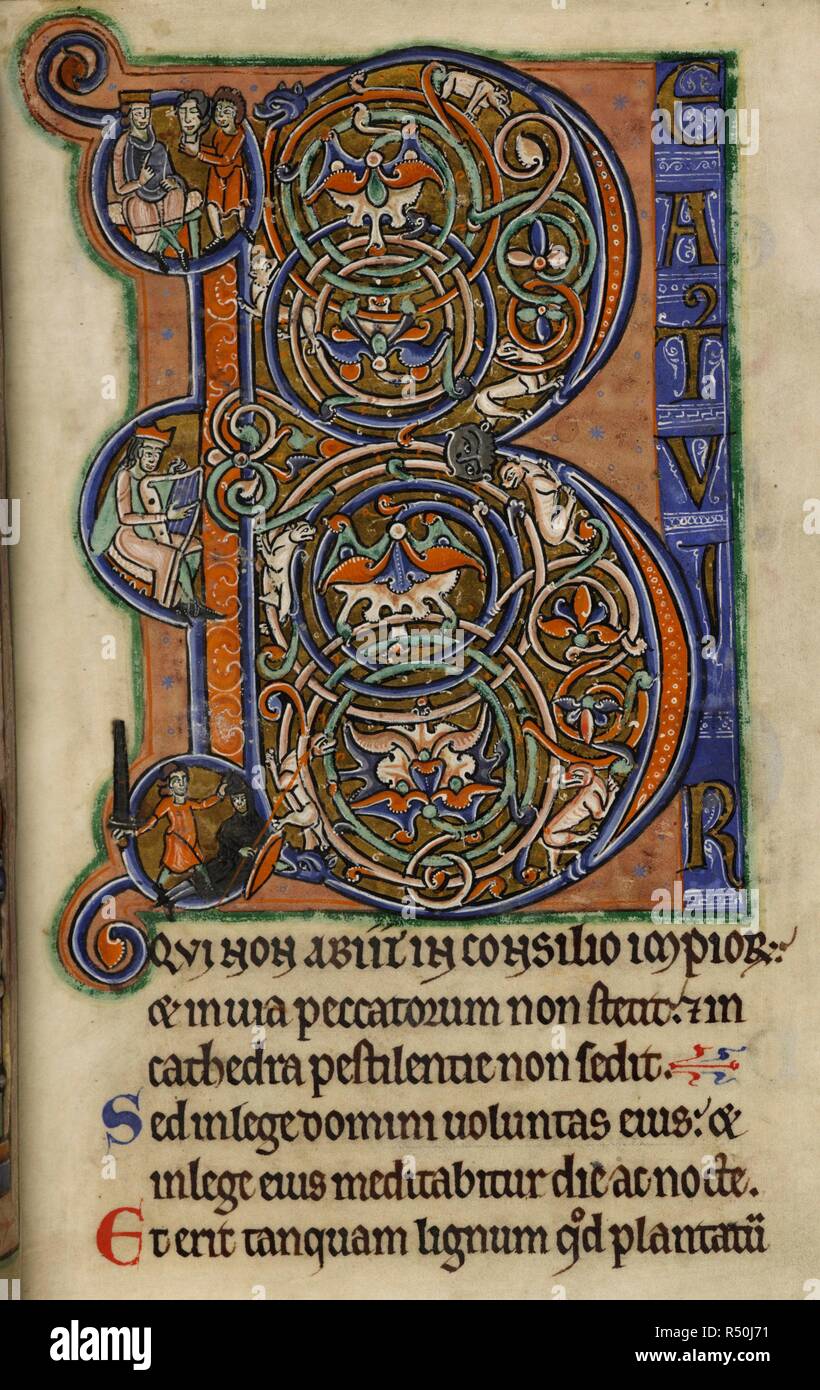 B
E
A
T
V
I
R
QVI NON ABIIT IN CONSILIO IMPIOR:
& in uia peccatorum non stetit: ⁊ in
cathedra pestilentie non sedit.
Sed in lege domini uoluntas eius: &
in lege eius meditabitur die ac nocte.
Et erit tanquam lignum qd plantatū
alamy
Image ID: R50J71
www.alamy.com